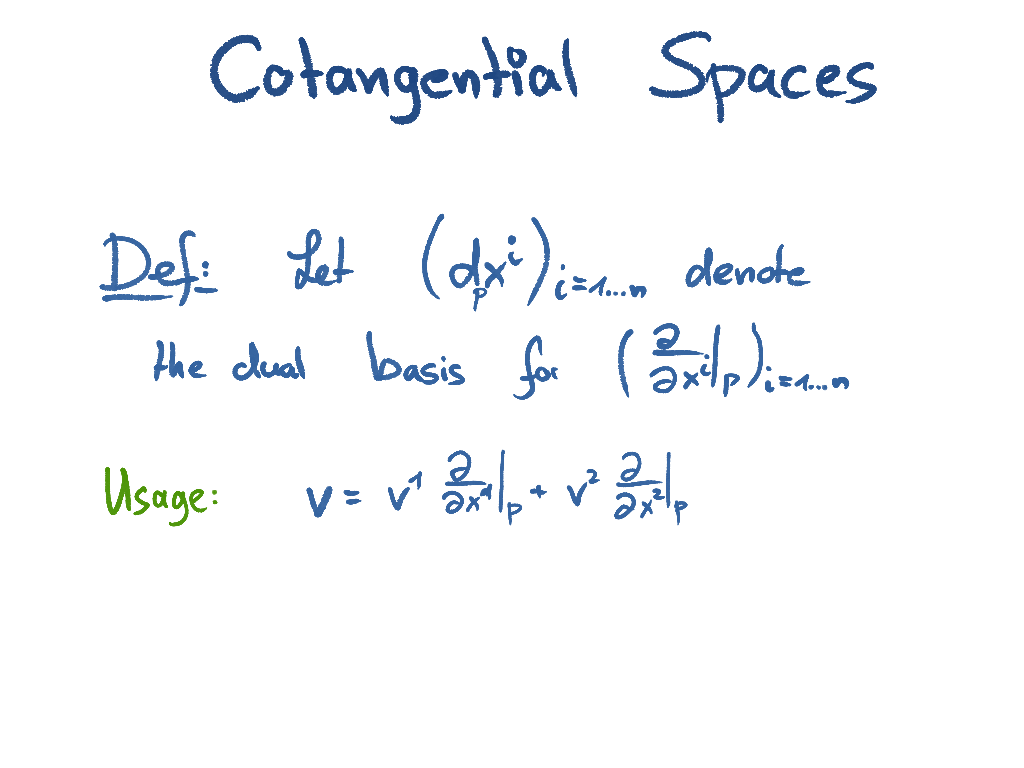 Cotangential Spaces
Def: Let (dₚxⁱ)ᵢ₌₁...ₙ denote
the dual basis for (∂/∂xⁱ|ₚ)ᵢ₌₁...ₙ
Usage: v = v¹ ∂/∂x¹|ₚ + v² ∂/∂x²|ₚ